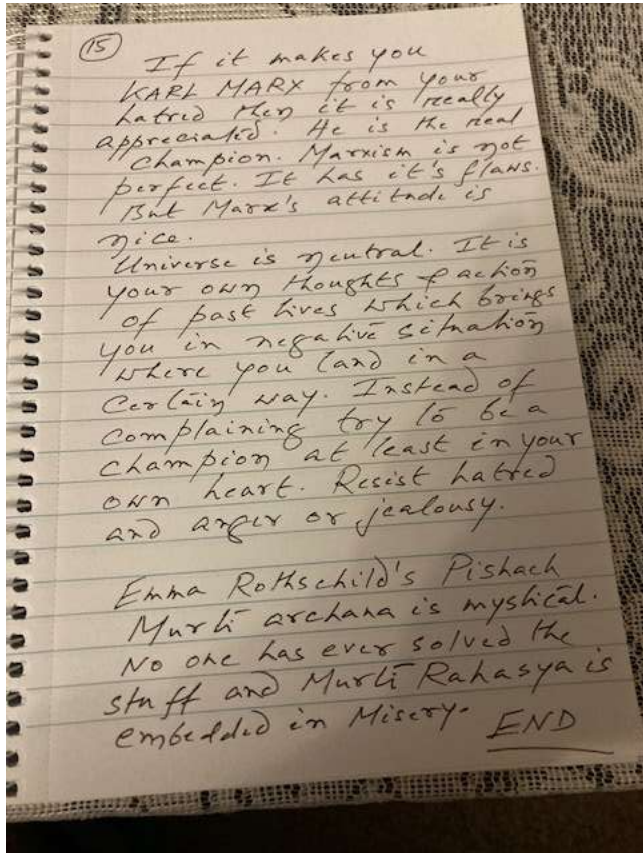 15
If it makes you
KARL MARX from your
hatred then it is really
appreciated. He is the real
Champion. Marxism is not
perfect. It has it's flaws.
But Marx's attitude is
nice.
Universe is neutral. It is
your own thoughts & action
of past lives which brings
you in negative situation
where you land in a
Certain way. Instead of
complaining try to be a
champion at least in your
own heart. Resist hatred
and anger or jealousy.
Emma Rothschild's Pishach
Murti archana is mystical.
No one has ever solved the
stuff and Murti Rahasya is
embedded in Misery.
END